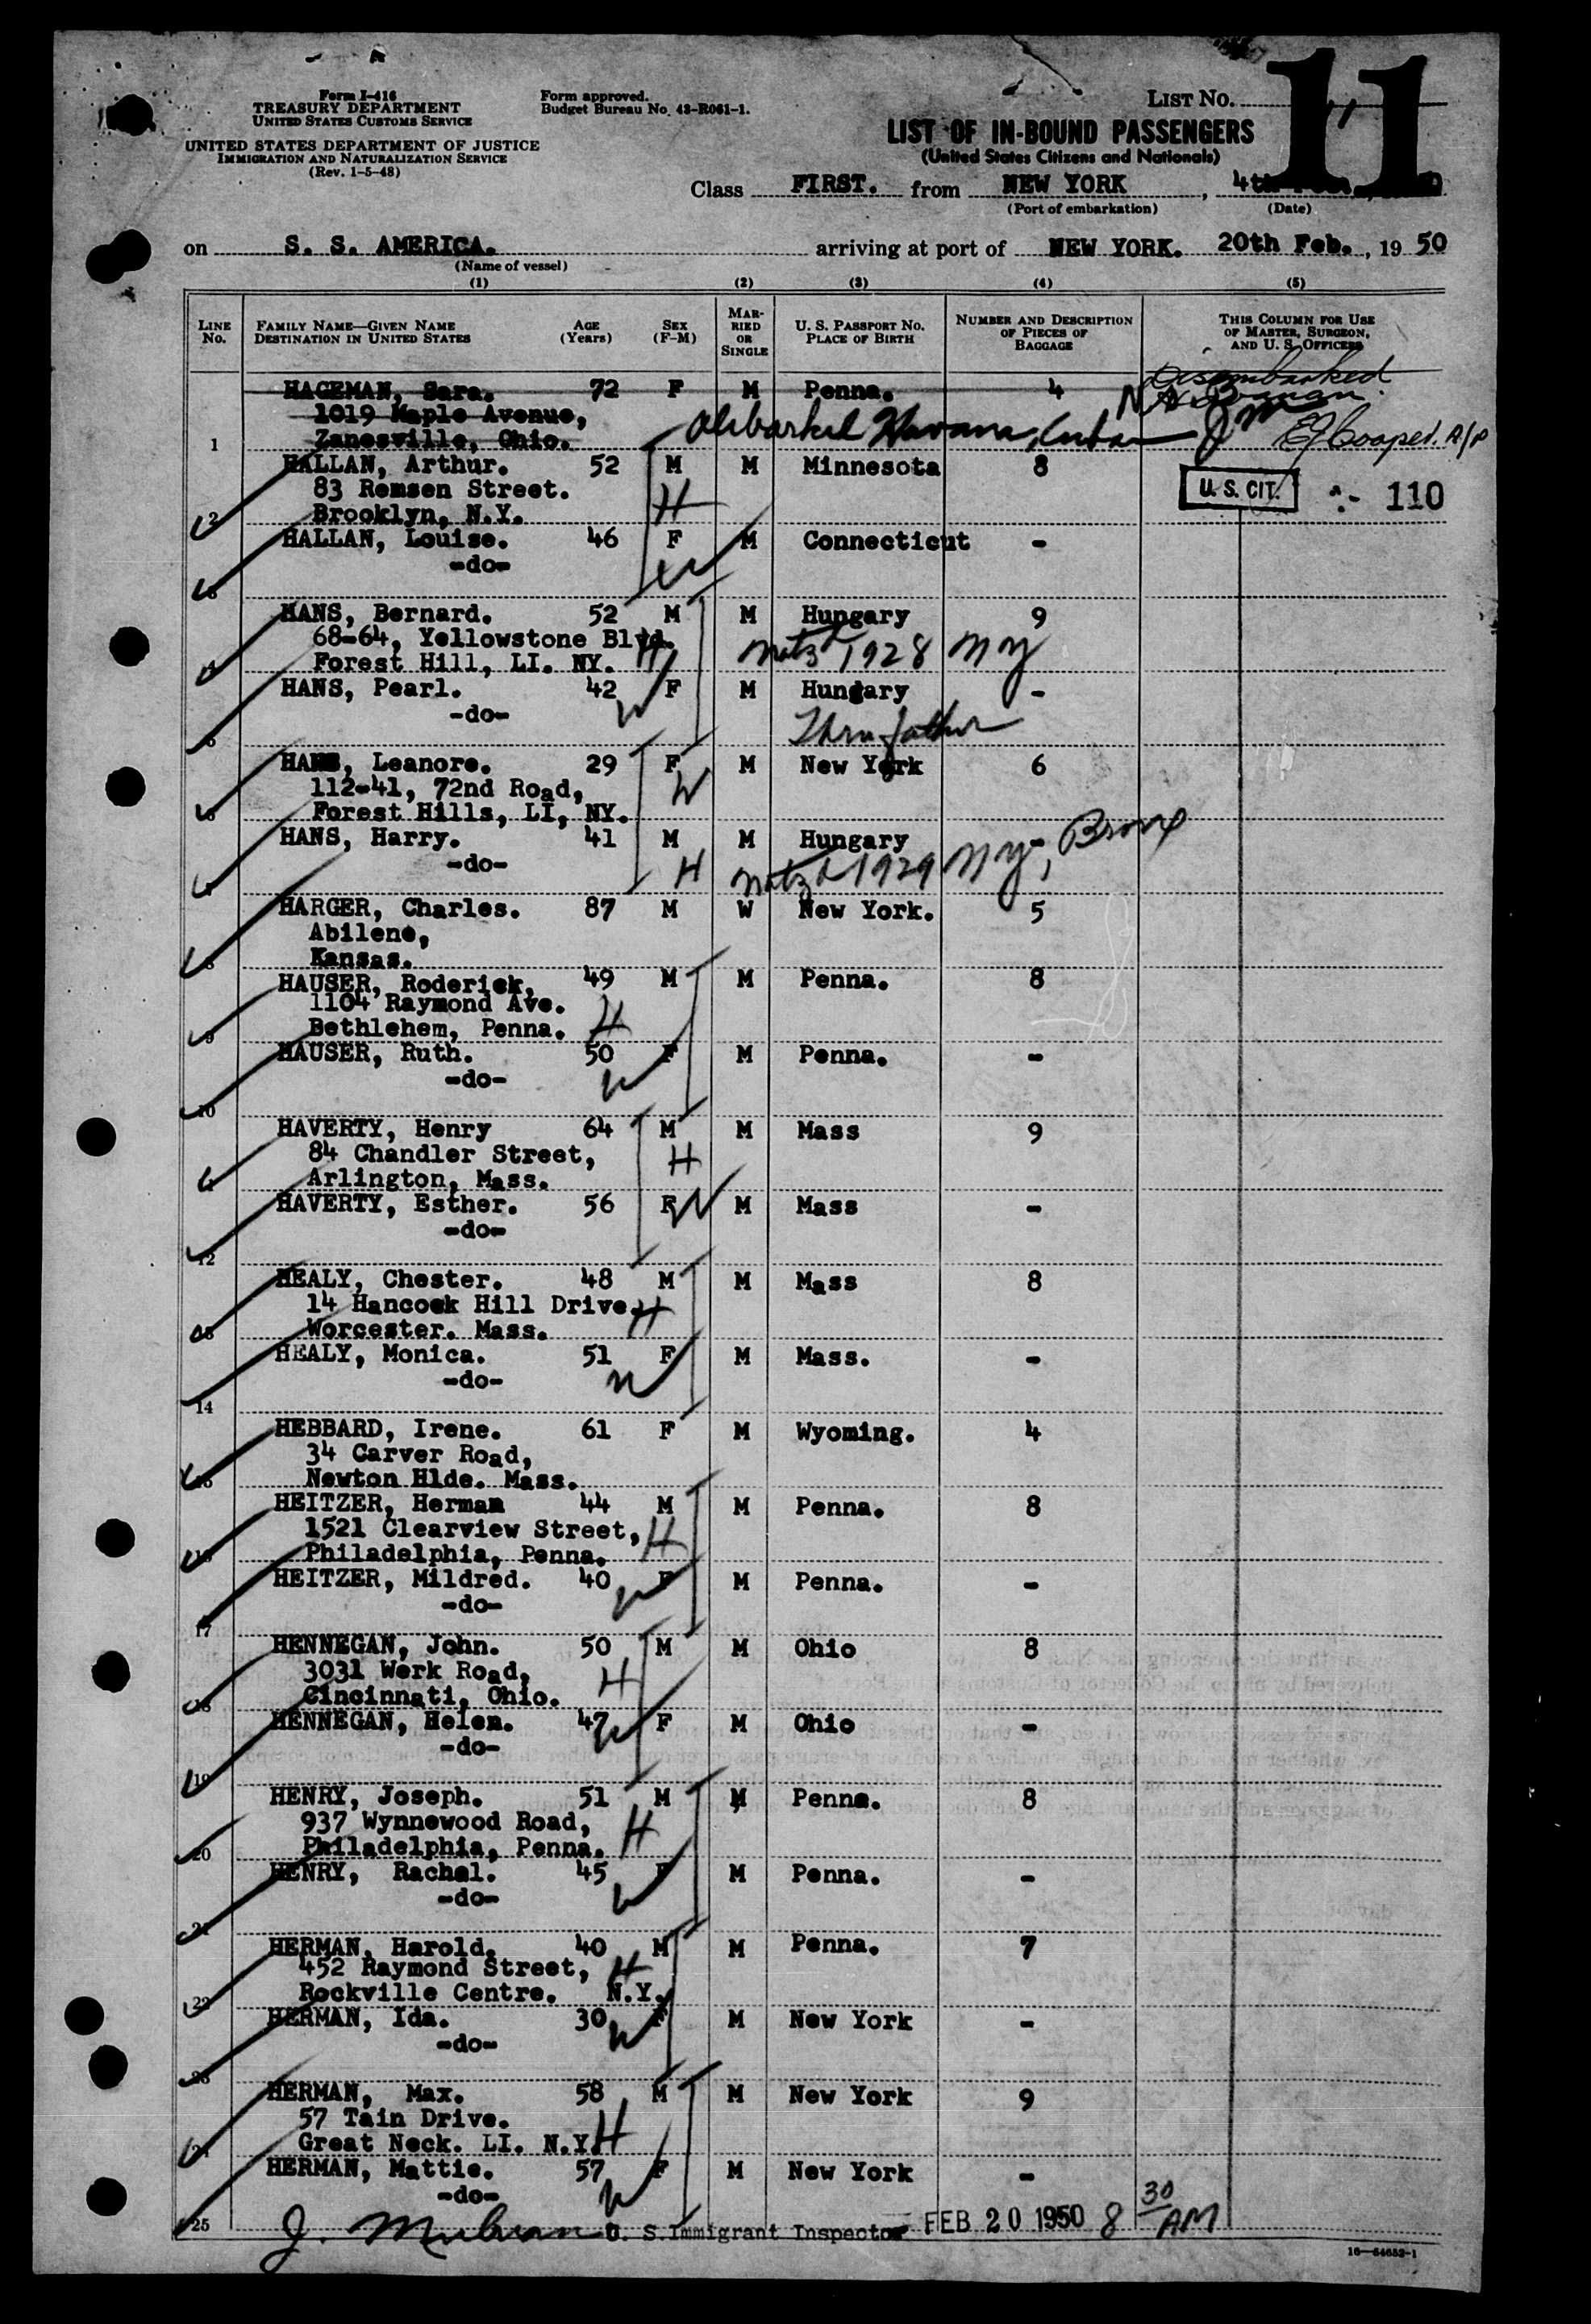 Form I-416
TREASURY DEPARTMENT
UNITED STATES CUSTOMS SERVICE
UNITED STATES DEPARTMENT OF JUSTICE
IMMIGRATION AND NATURALIZATION SERVICE
(Rev. 1-5-48)
Form approved.
Budget Bureau No. 43-R061-1.
LIST No. 11
LIST OF IN-BOUND PASSENGERS
(United States Citizens and Nationals)
Class FIRST. from NEW YORK, 4th
(Port of embarkation) (Date)
on S. S. AMERICA. arriving at port of NEW YORK. 20th Feb., 19 50
(Name of vessel)
(1) (2) (3) (4) (5)
LINE No. FAMILY NAME—GIVEN NAME DESTINATION IN UNITED STATES AGE (Years) SEX (F-M) MARRIED OR SINGLE U. S. PASSPORT No. PLACE OF BIRTH NUMBER AND DESCRIPTION OF PIECES OF BAGGAGE THIS COLUMN FOR USE OF MASTER, SURGEON, AND U. S. OFFICERS
HAGEMAN, Sara. 72 F M Penna. 4 Disembarked
1019 Maple Avenue, Havana.
1 Zanesville, Ohio. Disbarked Havana, Cuba EJ Cooper. A/P
HALLAN, Arthur. 52 M M Minnesota 8
83 Remsen Street. H U. S. CIT. 110
2 Brooklyn, N.Y.
HALLAN, Louise. 46 F M Connecticut -
-do- W
3
HANS, Bernard. 52 M M Hungary 9
68-64, Yellowstone Blvd. H Natzd 1928 NY
4 Forest Hill, LI. NY.
HANS, Pearl. 42 F M Hungary -
-do- W Thru father
5
HANS, Leanore. 29 F M New York 6
112-41, 72nd Road, W
6 Forest Hills, LI, NY.
HANS, Harry. 41 M M Hungary -
-do- H Natzd 1929 NY, Bronx
7
HARGER, Charles. 87 M W New York. 5
Abilene,
8 Kansas.
HAUSER, Roderick, 49 M M Penna. 8
1104 Raymond Ave.
9 Bethlehem, Penna. H
HAUSER, Ruth. 50 F M Penna. -
-do- W
10
HAVERTY, Henry 64 M M Mass 9
84 Chandler Street, H
Arlington, Mass.
HAVERTY, Esther. 56 F W M Mass -
-do-
12
HEALY, Chester. 48 M M Mass 8
14 Hancock Hill Drive. H
13 Worcester. Mass.
HEALY, Monica. 51 F M Mass. -
-do- W
14
HEBBARD, Irene. 61 F M Wyoming. 4
34 Carver Road,
15 Newton Hlde. Mass.
HEITZER, Herman 44 M M Penna. 8
1521 Clearview Street, H
16 Philadelphia, Penna.
HEITZER, Mildred. 40 F M Penna. -
-do- W
17
HENNEGAN, John. 50 M M Ohio 8
3031 Werk Road, H
18 Cincinnati, Ohio.
HENNEGAN, Helen. 47 F M Ohio -
-do- W
19
HENRY, Joseph. 51 M M Penna. 8
937 Wynnewood Road, H
20 Philadelphia, Penna.
HENRY, Rachel. 45 F M Penna. -
-do- W
21
HERMAN, Harold. 40 M M Penna. 7
452 Raymond Street, H
22 Rockville Centre. N.Y.
HERMAN, Ida. 30 F M New York -
-do- W
23
HERMAN, Max. 58 M M New York 9
57 Tain Drive.
24 Great Neck. LI. N.Y. H
HERMAN, Mattie. 57 F M New York -
-do- W
25 J. U. S. Immigrant Inspector FEB 20 1950 8 30 AM
16—54652-1